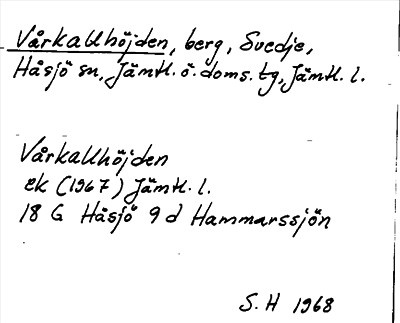 Vårkallhöjden, berg, Svedje,
Håsjö sn, Jämtl. ö. doms. tg, Jämtl. l.
Vårkallhöjden
ek (1967) Jämtl. l.
18 G Håsjö 9 d Hammarssjön
S. H 1968